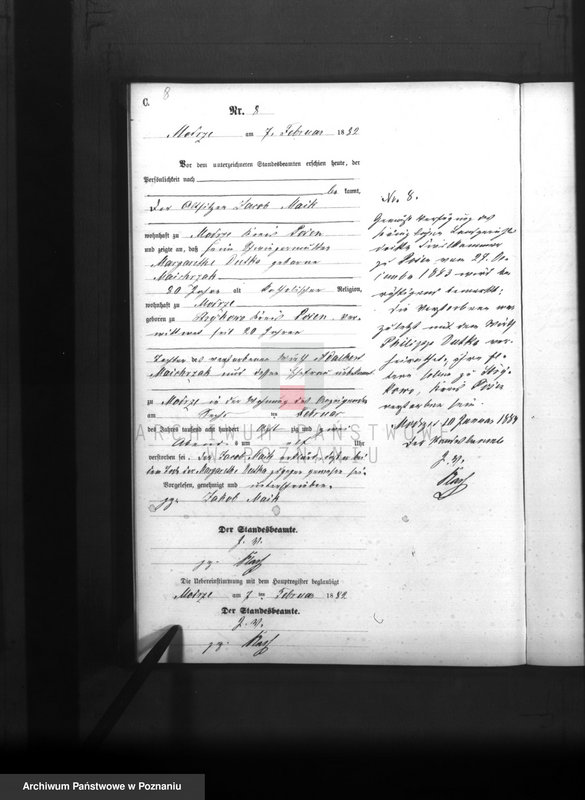 C. 8
Nr. 8
Modrze am 7. Februar 1882
Vor dem unterzeichneten Standesbeamten erschien heute, der
Persönlichkeit nach
be kannt,
Der Altsitzer Jacob Maik
wohnhaft zu Modrze Kreis Posen
und zeigte an, daß seine Schwiegermutter
Margarethe Dutka geborene
Maichrzak
Jahre alt Katholischer Religion,
wohnhaft zu Modrze
geboren zu Kreis Posen, ver-
wittwet seit 20 Jahren
Tochter des verstorbenen Wirth Adalbert
Maichrzak und dessen Ehefrau unbekannt
zu Modrze in der Wohnung des Anzeigenden
am Februar
des Jahres tausend acht hundert acht zig und zwei
Abends um Uhr
verstorben sei. Der Jacob Maik daß er bei
dem Tode der Margarethe Dutka zugegen gewesen sei.
Vorgelesen, genehmigt und unterschrieben.
gez. Jakob Maik
Der Standesbeamte.
J. V.
gez.
Die Uebereinstimmung mit dem Hauptregister beglaubigt
Modrze am 7 ten Februar 1882
Der Standesbeamte.
J. V.
gez.
No. 8.
Gemäß Verfügung des
Königlichen Landgerichts
dritte Civilkammer
zu Posen vom 27. De-
zember 1883 wird be-
richtigend bemerkt:
Die Verstorbene war
zuletzt mit dem Wirth
Philipp Dutka ver-
heirathet,
Kreis Posen
verstorben sein.
Modrze 10 Januar 1884
Der Standesbeamte
J. V.
ARCHIWUM PAŃSTWOWE
W POZNANIU
Archiwum Państwowe w Poznaniu